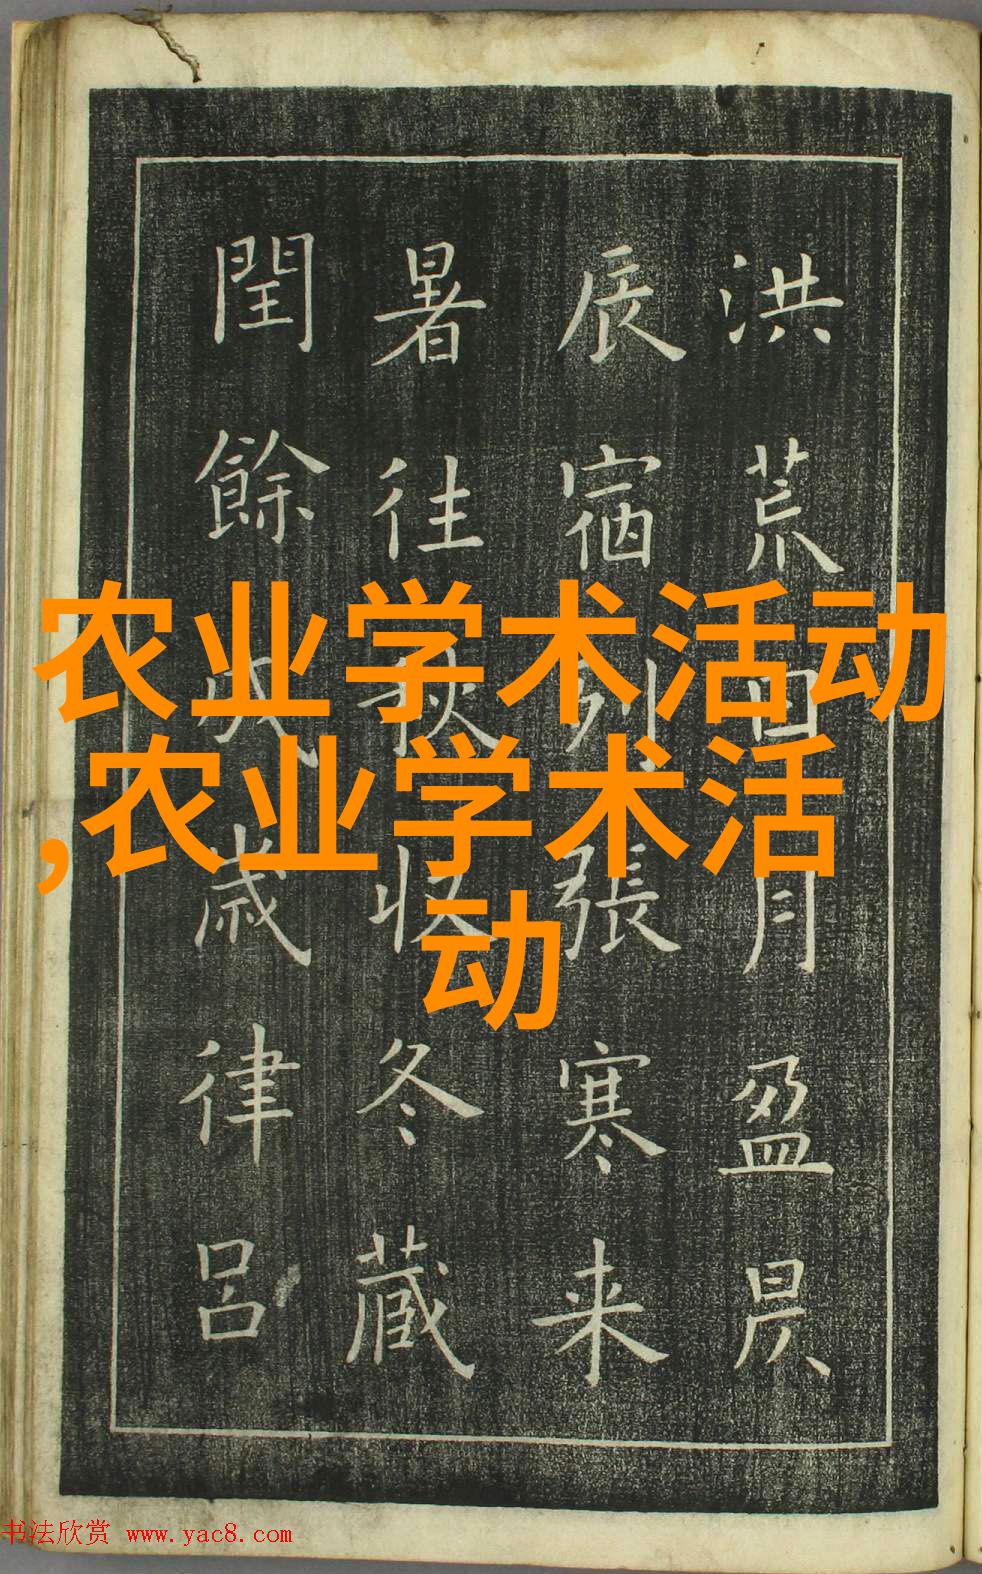 洪荒日月盈昃
辰宿列張寒来
暑往秋收冬藏
閏餘成歲律呂
农业学术活动
,农业学术活
动
书法欣赏 www.yac8.com